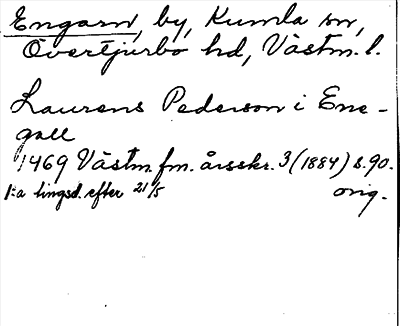 Engarn, by, Kumla sn,
Övertjurbo hd, Västm. l.
Laurens Pederson i Ene-
gall
1469 Västm. fm. årsskr. 3 (1884) s. 90.
1:a tingsd. efter 21/5 orig.